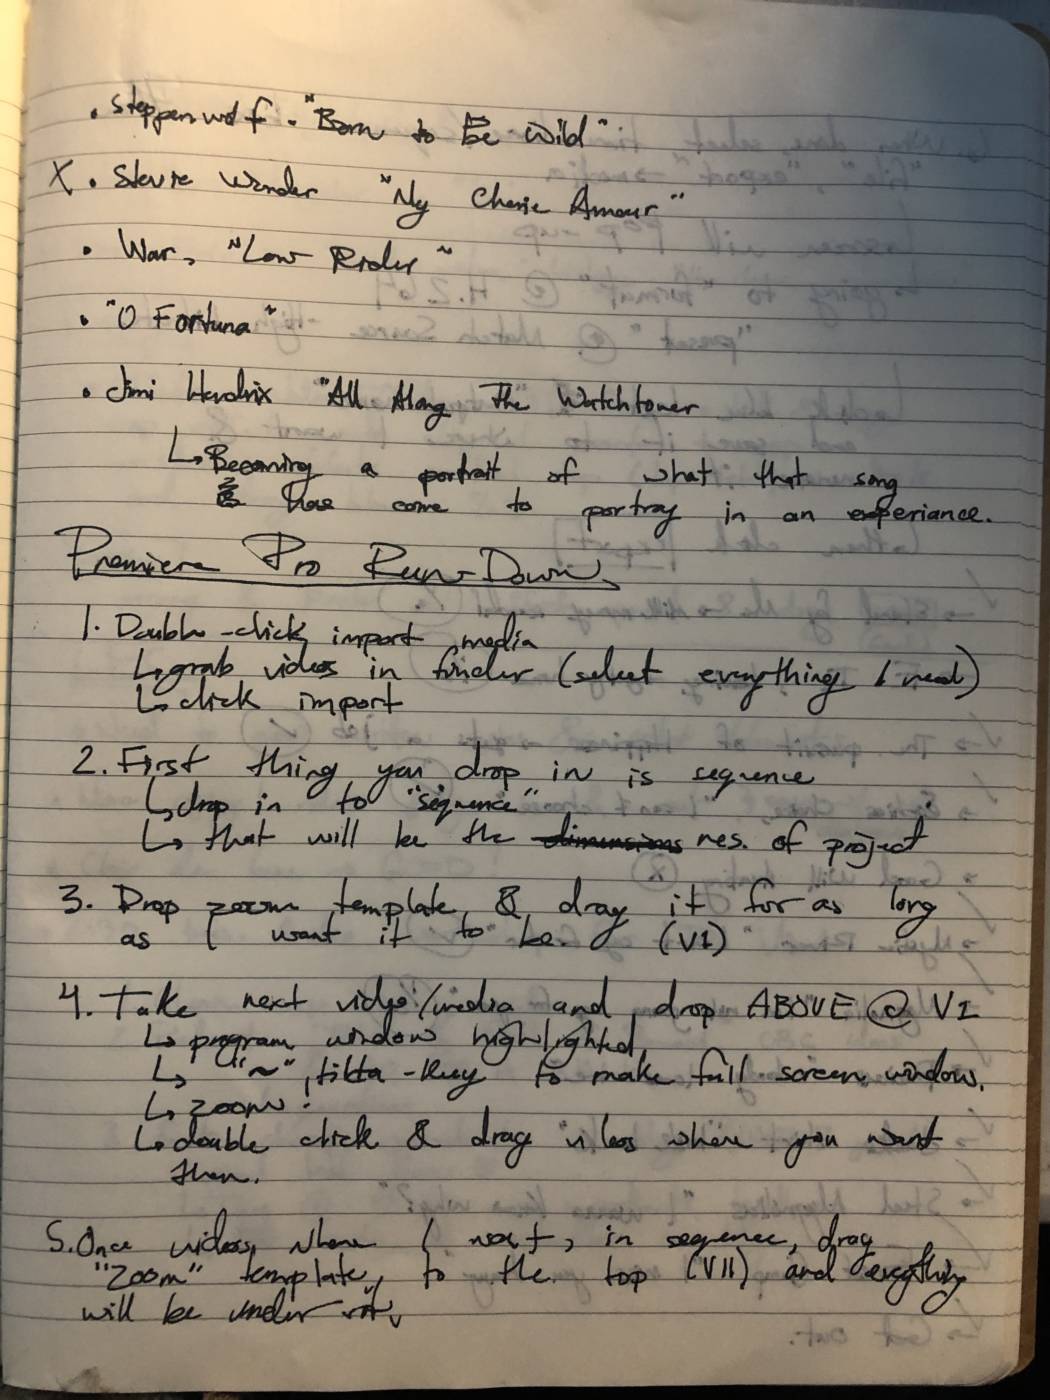 • Steppenwolf - "Born to Be Wild"
X • Stevie Wonder "My Cherie Amour"
• War, "Low Rider"
• "O Fortuna"
• Jimi Hendrix "All Along The Watchtower
↳ Becoming a portrait of what that song
has come to portray in an experiance.
Premiere Pro Run-Down
1. Double-click import media
↳ grab videos in finder (select everything I need)
↳ click import
2. First thing you drop in is sequence
↳ drop in to "sequence"
↳ that will be the dimensions res. of project
3. Drop zoom template & drag it for as long
as I want it to be. (V1)
4. Take next video/media and drop ABOVE @ V1
↳ program window highlighted
↳ "~", tilda-key to make full screen window.
↳ zoom!
↳ double click & drag videos where you want
them.
5. Once videos where I want, in sequence, drag
"Zoom" template, to the top (V11) and everything
will be under it.